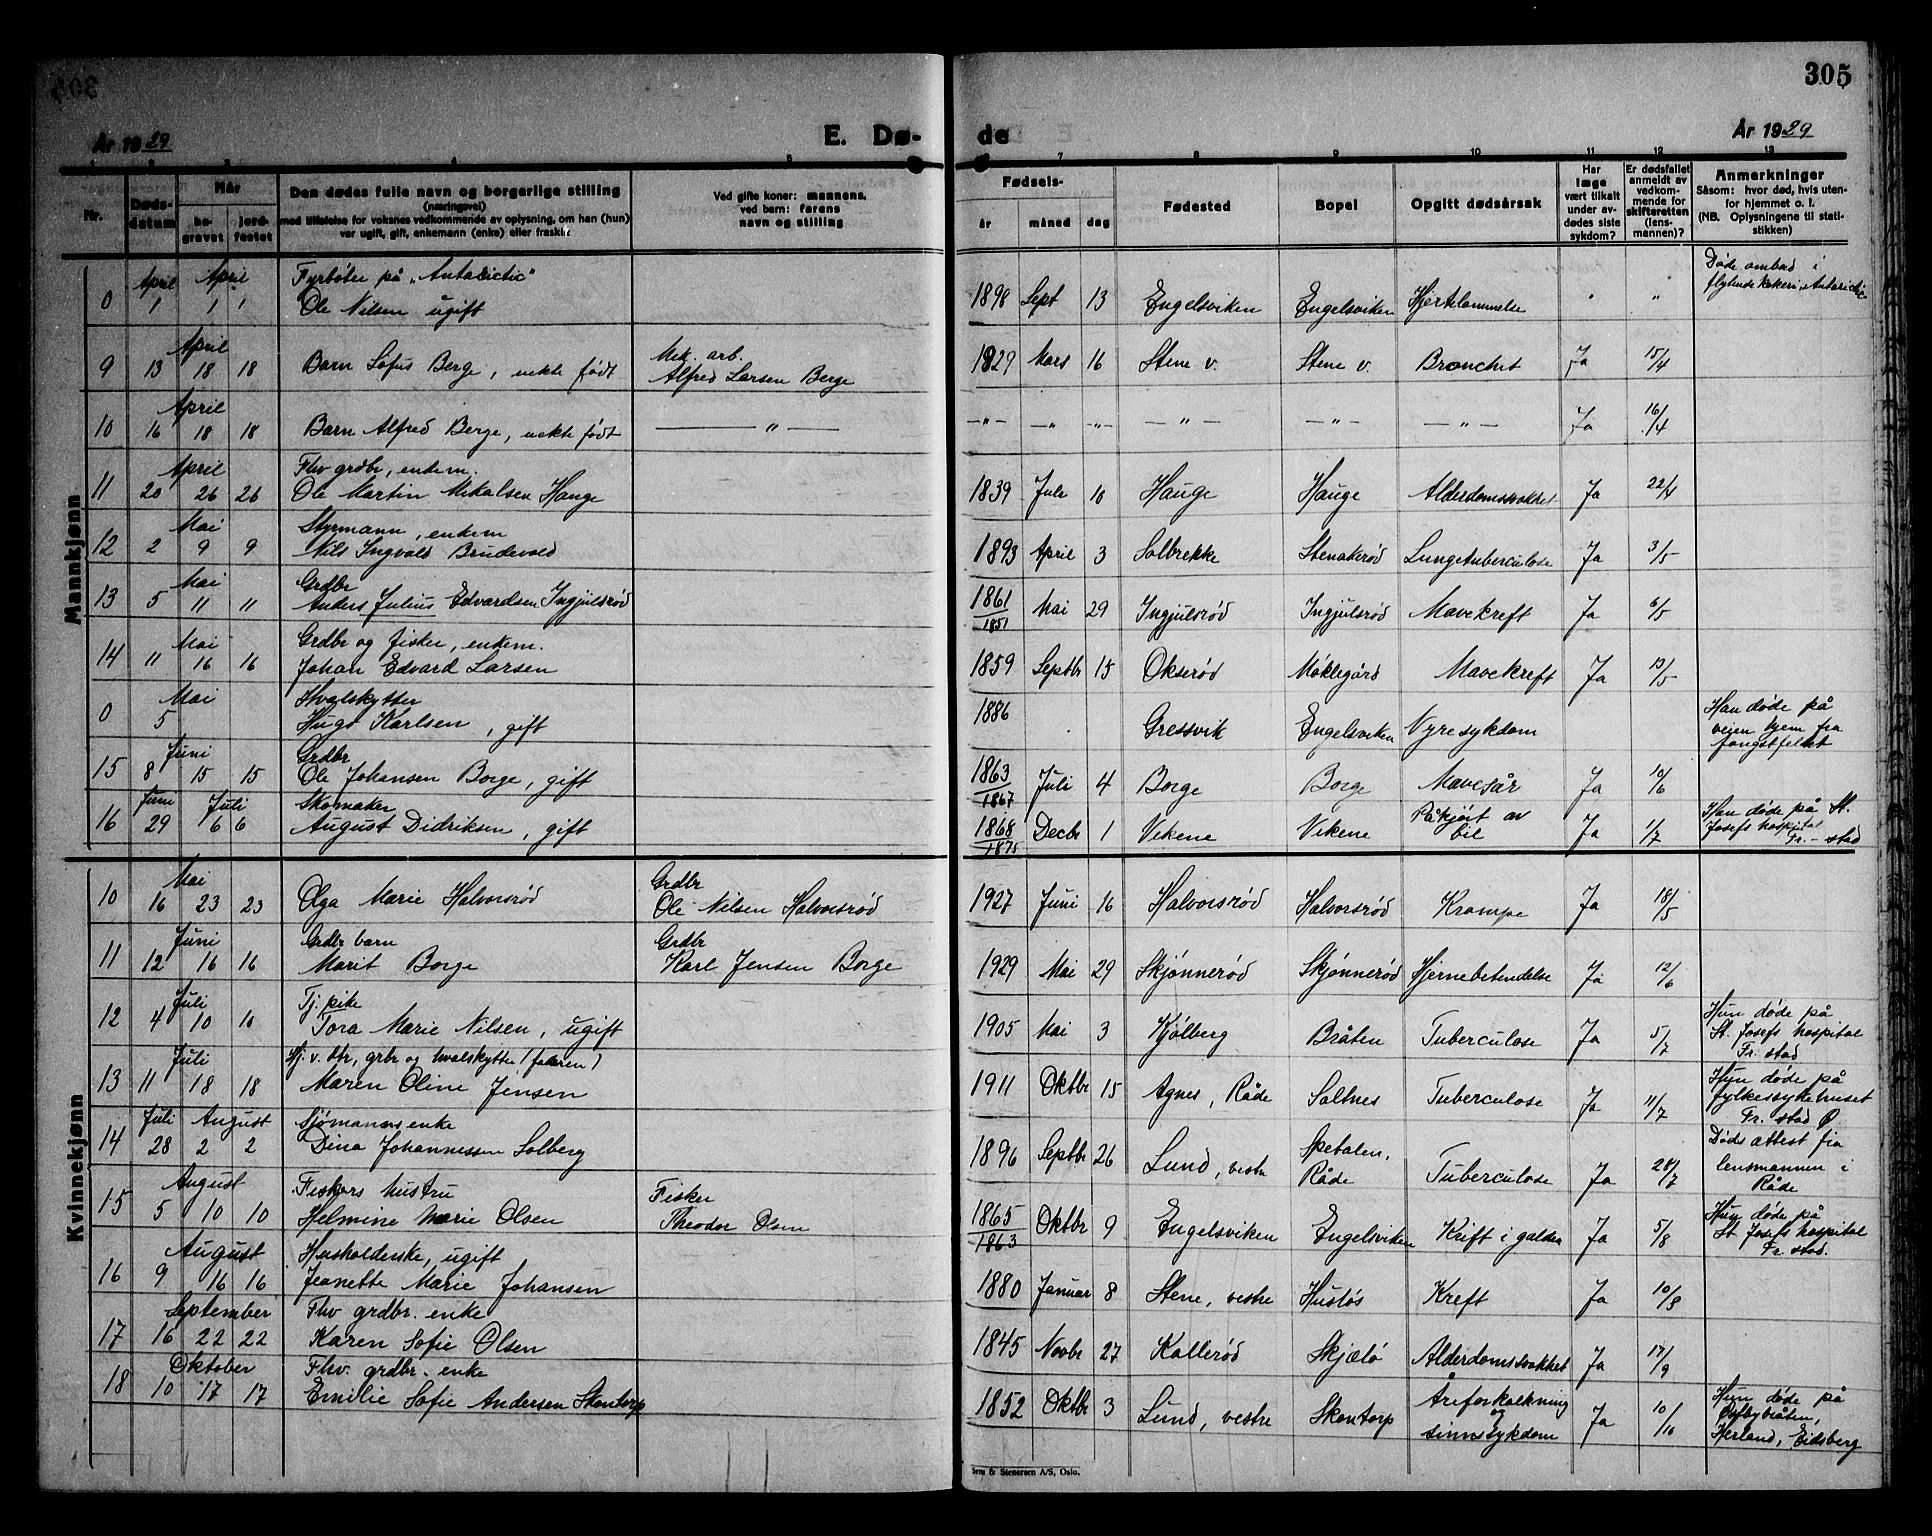 305
År 1929
E. Dø-
de
År 1929
1 2 3 4 5 7 8 9 10 11 12 13
Nr.
Døds-
datum
Når
be-
gravet
jord-
festet
Den dødes fulle navn og borgerlige stilling
(næringsvei)
med tilføielse for voksnes vedkommende av oplysning, om han (hun)
var ugift, gift, enkemann (enke) eller fraskilt
Ved gifte koner: mannens,
ved barn: farens
navn og stilling
Fødsels-
år måned dag
Fødested
Bopel
Opgitt dødsårsak
Har
læge
vært tilkalt
under av-
dødes siste
sykdom?
Er dødsfallet
anmeldt av
vedkom-
mende for
skifteretten
(lens-
mannen)?
Anmerkninger
Såsom: hvor død, hvis uten-
for hjemmet o. l.
(NB. Oplysningene til stati-
stikken)
Mannkjønn
April April Fyrbøter på "Antarctic" Døde ombord i
0 1 1 1 Ole Nilsen ugift 1898 Sept 13 Engelsviken Engelsviken Hjertelammelse " " flytende kokeri "Antarctic"
April Mek. arb.
9 13 18 18 Barn Sofus Berge, uekte født Alfred Larsen Berge 1929 Mars 16 Stene v. Stene v. Bronchit Ja 15/4
April
10 16 18 18 Barn Alfred Berge, uekte født — " — -"- " -"- — " — — " — — " — Ja 16/4
April Fhv grdbr, enkem.
11 20 26 26 Ole Martin Mikalsen Hauge 1839 Juli 10 Hauge Hauge Alderdomssvakhet Ja 22/4
Mai Styrmann, enkem
12 2 9 9 Nils Ingvald Brudevold 1893 April 3 Solbrekke Stenakerød Lungetuberculose Ja 3/5
Mai Grdbr
13 5 11 11 Anders Julius Edvardsen Ingjulsrød 1861/1851 Mai 29 Ingjulsrød Ingjulsrød Mavekreft Ja 6/5
Mai Grdbr og fisker, enkem.
14 11 16 16 Johan Edvard Larsen 1859 Septbr 15 Okserød Møklegård Mavekreft Ja 13/5
Mai Hvalskytter Han døde på
0 5 Hugo Karlsen, gift 1886 Gressvik Engelsviken Nyresykdom veien hjem fra
fangstfeltet
Juni Grdbr
15 8 15 15 Ole Johansen Borge, gift 1863/1867 Juli 4 Borge Borge Mavesår Ja 10/6
Juni Juli Skomaker Påkjørt av Han døde på St.
16 29 6 6 August Didriksen, gift 1868/1875 Decbr 1 Vikene Vikene bil Ja 1/7 Josefs hospital
Fr.-stad
Kvinnekjønn
Mai Grdbr
10 16 23 23 Olga Marie Halvorsrød Ole Nilsen Halvorsrød 1927 Juni 16 Halvorsrød Halvorsrød Krampe Ja 18/5
Juni Grdbr barn Grdbr
11 12 16 16 Marit Borge Karl Jensen Borge 1929 Mai 29 Skjønnerød Skjønnerød Hjernebetendelse Ja 12/6
Juli Tj. pike Hun døde på
12 4 10 10 Tora Marie Nilsen, ugift 1905 Mai 3 Kjølberg Bråten Tuberculose Ja 5/7 St. Josefs hospital
Fr. stad
Juli Hj. v. dtr, grbr og hvalskytter (faren) Hun døde på
13 11 18 18 Maren Oline Jensen 1911 Oktbr 15 Agnes, Råde Saltnes Tuberculose Ja 11/7 fylkessykehuset
Fr. stad Ø
Juli August Sjømannsenke Spetalen, Dødsattest fra
14 28 2 2 Dina Johannessen Solberg 1896 Septbr 26 Lund, vestre Råde Tuberculose Ja 28/7 lensmannen i
Råde
August Fiskers hustru Fisker Hun døde på
15 5 10 10 Helmine Marie Olsen Theodor Olsen 1865/1863 Oktbr 9 Engelsviken Engelsviken Kreft i galden Ja 5/8 St. Josefs hospital
Fr. stad.
August Husholderske, ugift
16 9 16 16 Jeanette Marie Johansen 1880 Januar 8 Stene, vestre Husløs Kreft Ja 10/8
September Fhv grdbr. enke
17 16 22 22 Karen Sofie Olsen 1845 Novbr 27 Kallerød Skjælø Alderdomssvakhet Ja 17/9
Oktober Fhv. grdbr. enke Åreforkalkning Hun døde på
18 10 17 17 Emilie Sofie Andersen Skontorp 1852 Oktbr 3 Lund, vestre Skontorp og Ja 10/10
sinnssykdom Herland, Eidsberg
Sem & Stenersen A/S, Oslo.